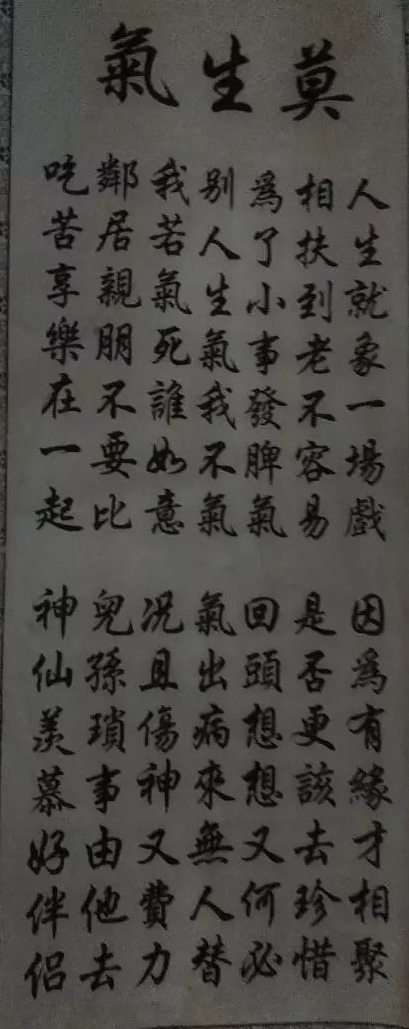 莫生氣
人生就象一場戲
因爲有緣才相聚
相扶到老不容易
是否更該去珍惜
爲了小事發脾氣
回頭想想又何必
别人生氣我不氣
氣出病來無人替
我若氣死誰如意
况且傷神又費力
鄰居親朋不要比
兒孫瑣事由他去
吃苦享樂在一起
神仙羡慕好伴侣